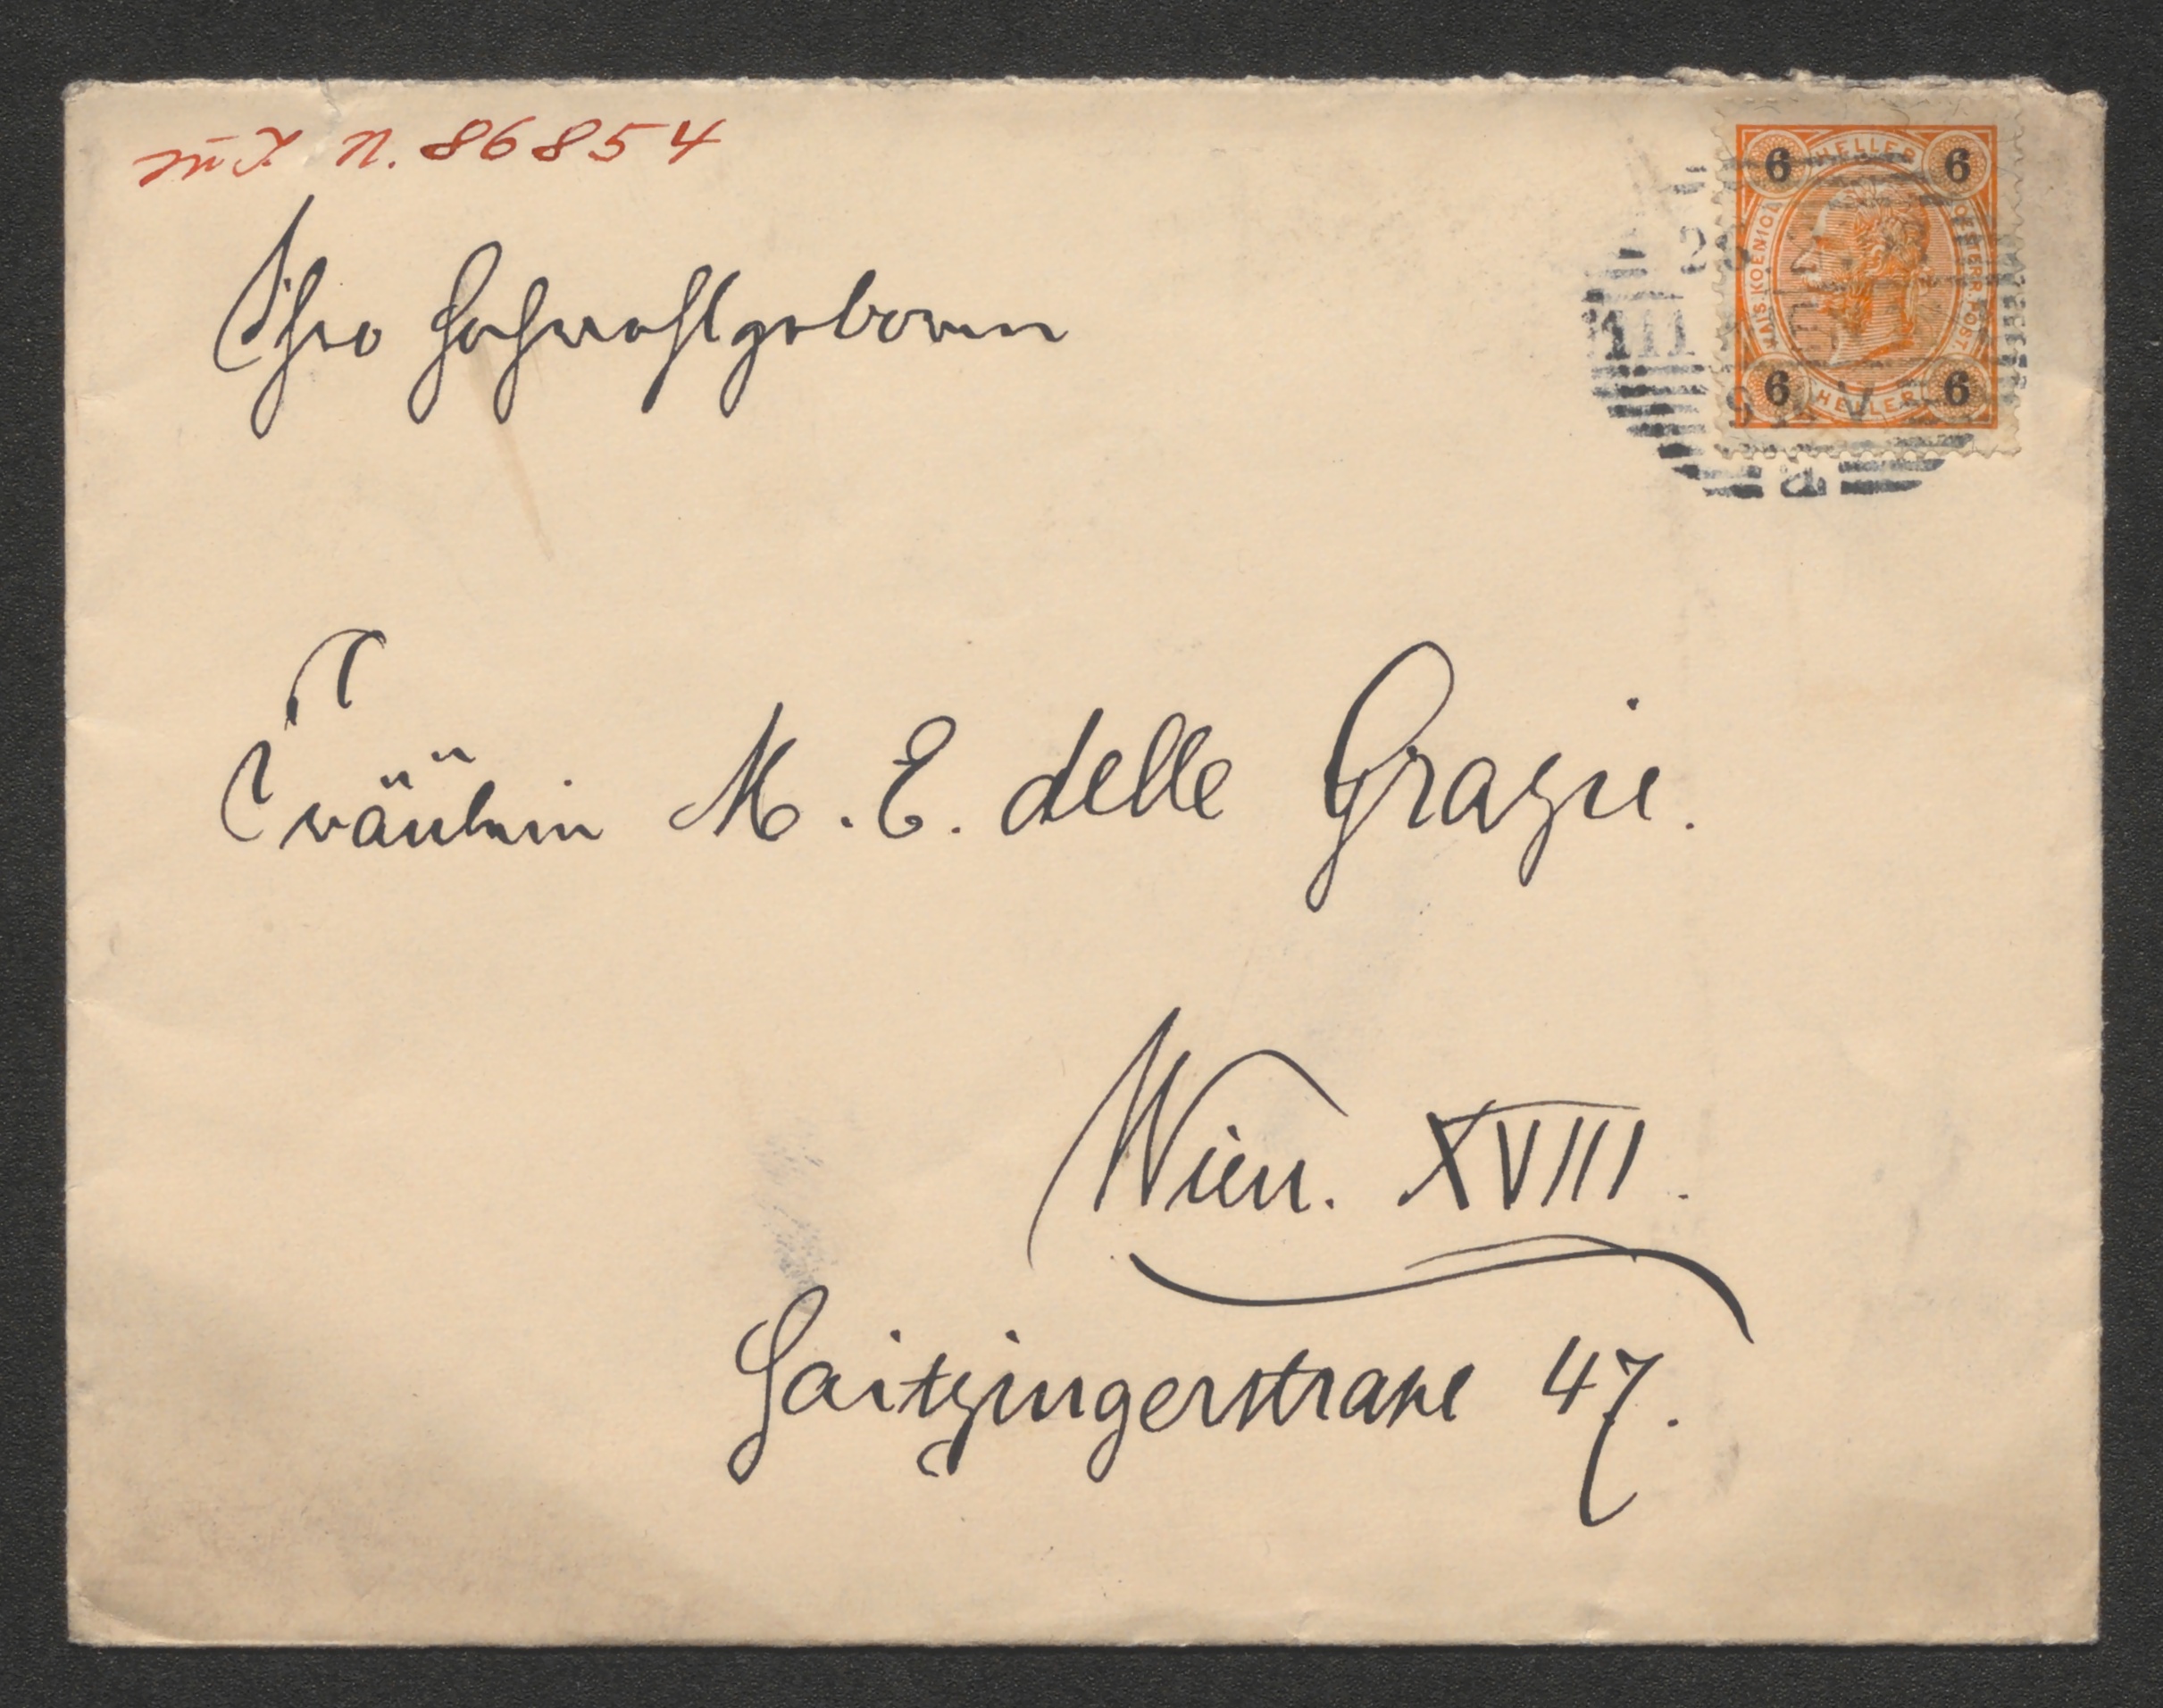 N. 86854
Ihro Hochwohlgeboren
Fräulein M. E. delle Grazie.
Wien. XVIII.
Haitzingerstraße 47.
6 HELLER 6
KAIS. KOENIGL. OESTERR. POST.
6 HELLER 6